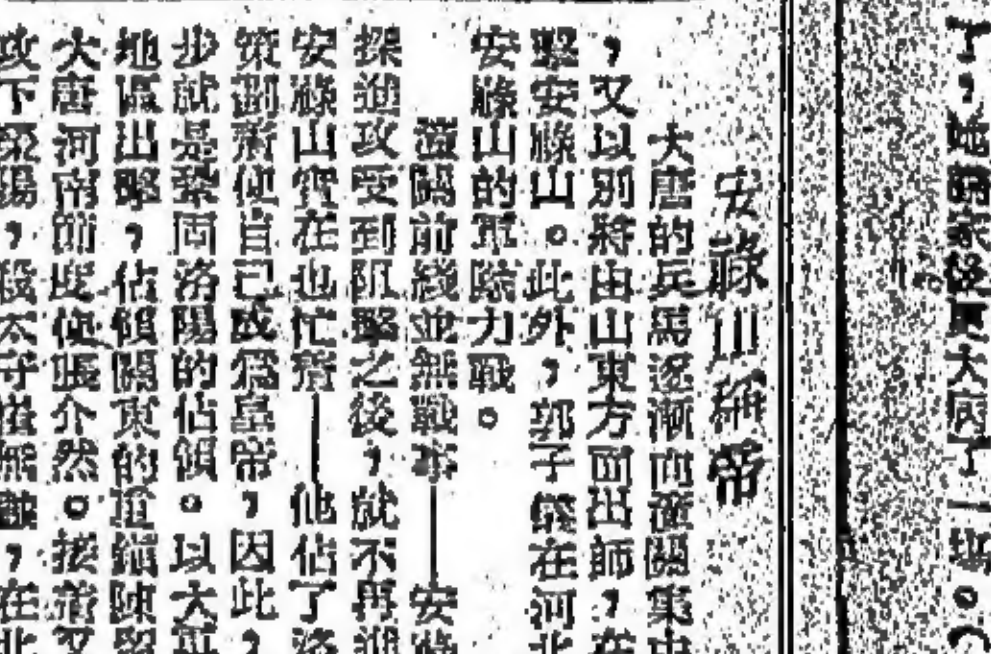 了，她的家後大病了一場。
安祿山稱帝
大唐的兵馬逐漸向潼關集中
，又以別將由山東方面出師，在
擊安祿山。此外，郭子儀在河北
安祿山的軍隊力戰。
潼關前綫並無戰事——安祿
採進攻受到阻擊之後，就不再進
安祿山實在也忙着——他佔了洛
策劃着使自己成爲皇帝，因此，
步就是鞏固洛陽的佔領。以大軍
地區出擊，佔領關東的重鎮陳留
大唐河南節度使張介然。接着又
攻下滎陽，殺太守崔無詖，在北